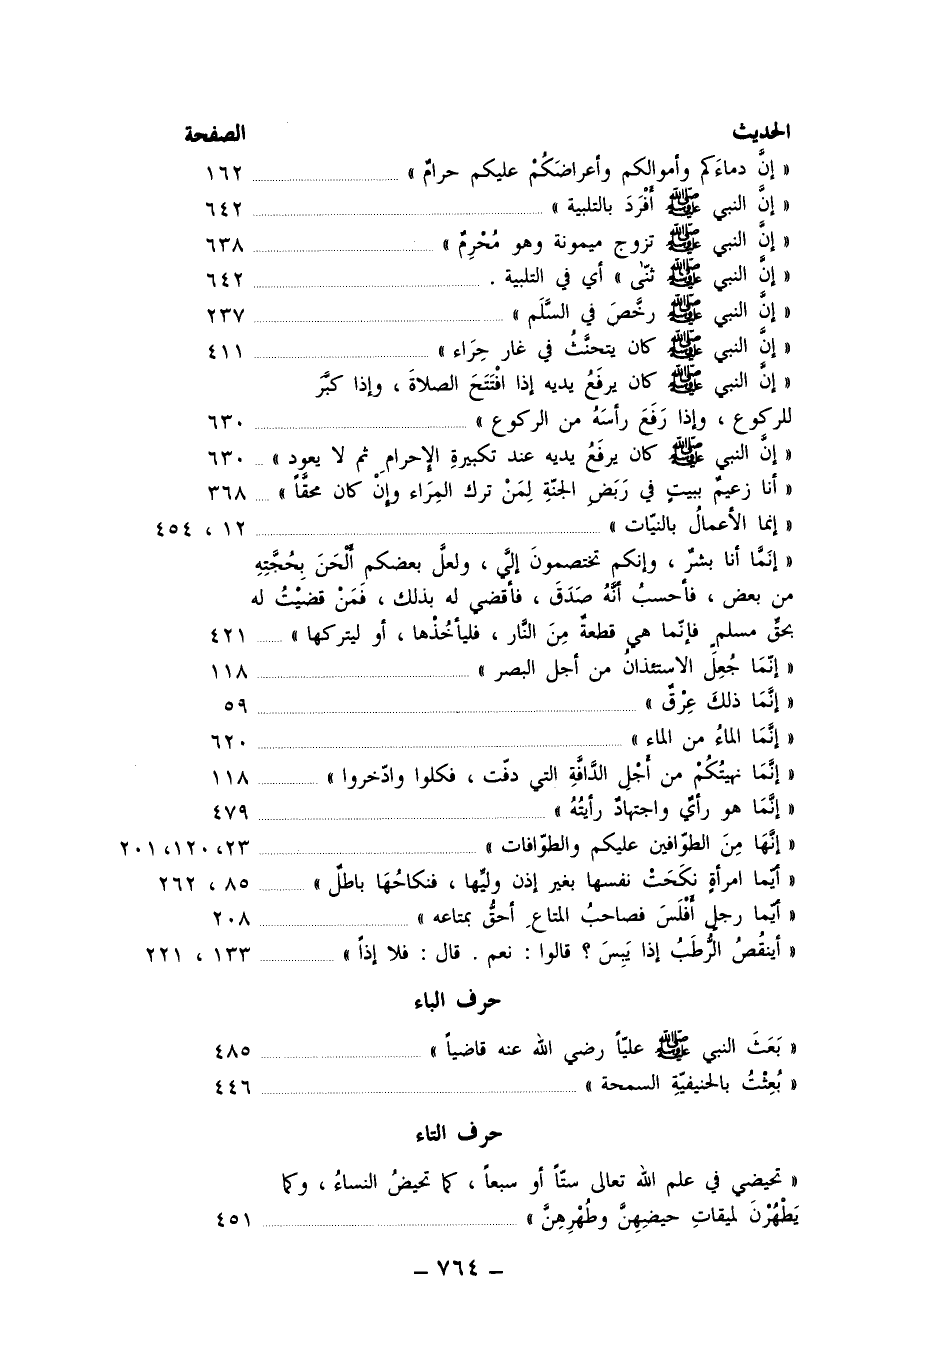 الحديث الصفحة
« إنَّ دماءَكم وأموالكم وأعراضَكُمْ عليكم حرامٌ » ١٦٢
« إنَّ النبي ﷺ أَفْرَدَ بالتلبية » ٦٤٢
« إنَّ النبي ﷺ تزوج ميمونة وهو مُحْرِمٌ » ٦٣٨
« إنَّ النبي ﷺ ثنّى » أي في التلبية . ٦٤٢
« إنَّ النبي ﷺ رخَّصَ في السَّلَم » ٢٣٧
« إنَّ النبي ﷺ كان يتحنَّثُ في غار حِرَاء » ٤١١
« إنَّ النبي ﷺ كان يرفَعُ يديه إذا افْتَتَحَ الصلاةَ ، وإذا كبَّرَ
للركوع ، وإذا رَفَعَ رأسَهُ من الركوع » ٦٣٠
« إنَّ النبي ﷺ كان يرفَعُ يديه عند تكبيرةِ الإحرامِ ثم لا يعود » ٦٣٠
« أنا زعيمٌ ببيتٍ في رَبَضِ الجنّةِ لِمَنْ ترك المِرَاء وإنْ كان محقَّاً » ٣٦٨
« إنما الأعمالُ بالنيّات » ١٢ ، ٤٥٤
« إنَمَّا أنا بشرٌ ، وإنكم تختصمونَ إليَّ ، ولعلَّ بعضكم أَلْحَنَ بِحُجَّتِهِ
من بعض ، فأحسبُ أنَّهُ صَدَقَ ، فأقضي له بذلك ، فَمَنْ قضيْتُ له
بحقِّ مسلمٍ فإنّما هي قطعةٌ مِنَ النَّار ، فليأخُذْها ، أو ليتركها » ٤٢١
« إنّمَا جُعِلَ الاستئذانُ من أجل البصر » ١١٨
« إنَّمَا ذلكَ عِرْقٌ » ٥٩
« إنَّمَا الماءُ من الماء » ٦٢٠
« إنَّمَا نهيتُكُمْ من أَجْلِ الدَّافَّةِ التي دفّت ، فكلوا وادّخروا » ١١٨
« إنَّمَا هو رأيٌ واجتهادٌ رأيتُهُ » ٤٧٩
« إنَّهَا مِنَ الطوّافين عليكم والطوّافات » ٢٣، ١٢٠، ٢٠١
« أيّما امرأةٍ نكَحَتْ نفسها بغير إذن وليِّها ، فنكاحُهَا باطلٌ » ٨٥ ، ٢٦٢
« أيّما رجلٍ أَفْلَسَ فصاحبُ المتاعِ أحقُّ بمتاعه » ٢٠٨
« أينقُصُ الرُّطَبُ إذا يَبِسَ ؟ قالوا : نعم . قال : فلا إذاً » ١٣٣ ، ٢٢١
حرف الباء
« بَعَثَ النبي ﷺ عليّاً رضي الله عنه قاضياً » ٤٨٥
« بُعِثْتُ بالحنيفيّةِ السمحة » ٤٤٦
حرف التاء
« تحيضي في علم الله تعالى ستّاً أو سبعاً ، كما تحيضُ النساءُ ، وكما
يَطْهُرْنَ لميقاتِ حيضِهِنَّ وطُهْرِهِنَّ » ٤٥١
– ٧٦٤ –